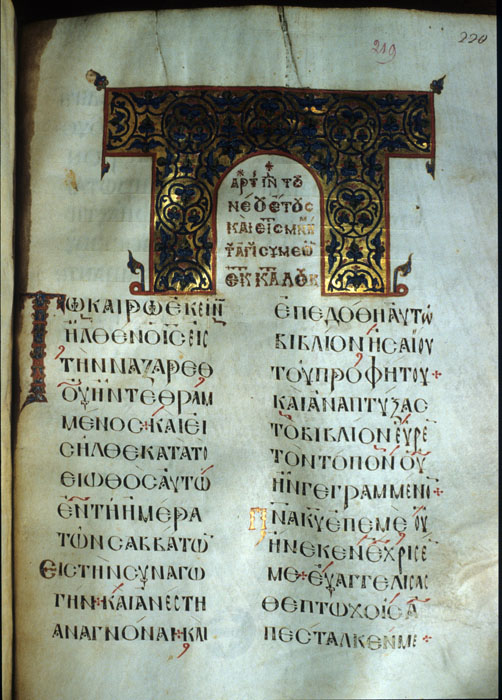 219
220
ΝΕΟΥ ΕΤΟΥϹ
ΚΑΙ ΕΙϹ
ϹΥΜΕΩ
ΤΩ ΚΑΙΡΩ ΕΚΕΙΝ
ΗΛΘΕΝ Ο ΙϹ ΕΙϹ
ΤΗΝ ΝΑΖΑΡΕΘ
ΟΥ ΗΝ ΤΕΘΡΑΜ
ΜΕΝΟϹ ΚΑΙ ΕΙ
ϹΗΛΘΕ ΚΑΤΑ ΤΟ
ΕΙΩΘΟϹ ΑΥΤΩ
ΕΝ ΤΗ ΗΜΕΡΑ
ΤΩΝ ϹΑΒΒΑΤΩ
ΕΙϹ ΤΗΝ ϹΥΝΑΓΩ
ΓΗΝ ΚΑΙ ΑΝΕϹΤΗ
ΑΝΑΓΝΟΝΑΙ ΚΑΙ
ΕΠΕΔΟΘΗ ΑΥΤΩ
ΒΙΒΛΙΟΝ ΗϹΑΙΟΥ
ΤΟΥ ΠΡΟΦΗΤΟΥ +
ΚΑΙ ΑΝΑΠΤΥΞΑϹ
ΤΟ ΒΙΒΛΙΟΝ ΕΥΡΕ
ΤΟΝ ΤΟΠΟΝ ΟΥ
ΗΝ ΓΕΓΡΑΜΜΕΝΟ +
ΠΝΑ ΚΥ ΕΠ ΕΜΕ ΟΥ
ΗΝΕΚΕΝ ΕΧΡΙϹΕ
ΜΕ + ΕΥΑΓΓΕΛΙϹΑϹ
ΘΕ ΠΤΩΧΟΙϹ Α
ΠΕϹΤΑΛΚΕΝ ΜΕ +